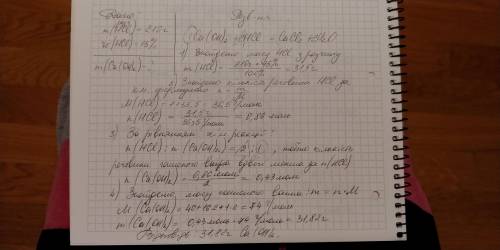 Дано:
m(HCl) = 210г
w(HCl) = 15%
m(Ca(OH)₂) - ?
Розв-ня
Ca(OH)₂ + 2HCl = CaCl₂ + 2H₂O
1) Знаходимо масу HCl з розчину
m(HCl) = 210г · 15% / 100% = 31.5г
2) Знаходимо кількість речовини HCl за
формулою n = m/M
M(HCl) = 1 + 35.5 = 36.5 г/моль
n(HCl) = 31.5г / 36.5 г/моль = 0,86 моль
3) За рівнянням реакції:
n(HCl) : n(Ca(OH)₂) = 2:1, тобто кількість
речовини гашеного вапна вдвічі менша за n(HCl)
n(Ca(OH)₂) = 0,86 моль / 2 = 0,43 моль
4) Знаходимо масу гашеного вапна: m = n·M
M(Ca(OH)₂) = 40+16·2+1·2 = 74 г/моль
m(Ca(OH)₂) = 0,43 моль · 74 г/моль = 31.82г
Відповідь: 31.82г Ca(OH)₂